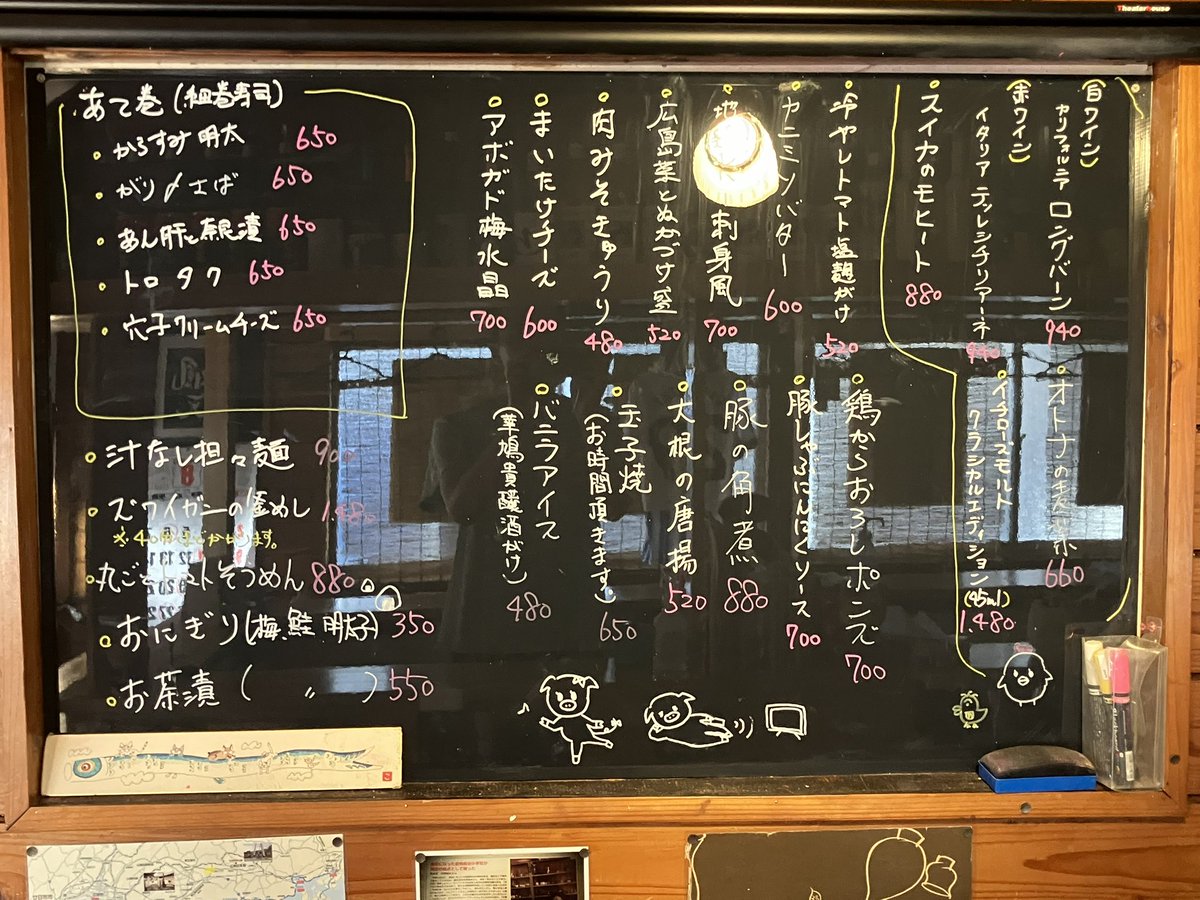 Theaterhouse
(白ワイン)
カリフォルニア ロングバーン
940
(赤ワイン)
イタリア テッレシチリアーネ
940
スイカのモヒート
880
オトナの
660
イチローズモルト
クラシカルエディション(45ml)
1,480
冷ヤしトマト塩麹がけ
520
ヤミミソバター
600
刺身風
700
広島菜とぬかづけ盛
520
肉みそきゅうり
480
まいたけチーズ
600
アボガド梅水晶
700
鶏からおろしポンズ
700
豚しゃぶにんにくソース
700
豚の角煮
880
大根の唐揚
520
玉子焼
(お時間頂きます)
650
バニラアイス
(華鳩貴醸酒がけ)
480
あて巻(細巻寿司)
からすみ明太 650
がり〆さば 650
あん肝と奈良漬 650
トロタク 650
穴子クリームチーズ 650
汁なし担々麺 900
ズワイガニの釜めし 1,480
丸ごとトマトそうめん 880
おにぎり(梅、鮭、明太子) 350
お茶漬( 〃 ) 550